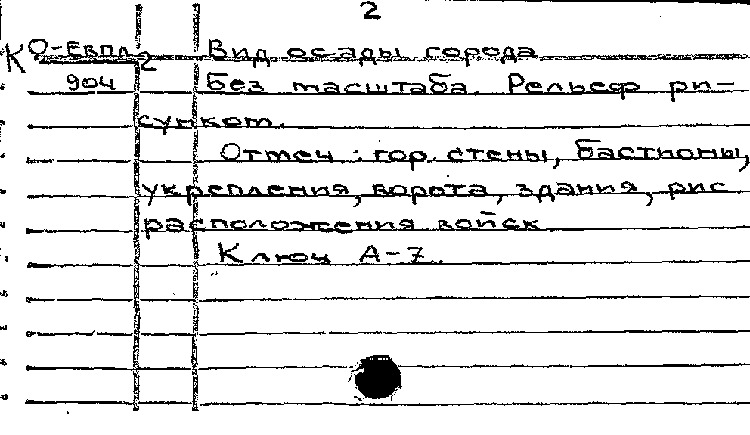 2
К О-Евпл. 2 Вид осады города
904 Без масштаба. Рельеф ри-
сунком.
Отмеч.: гор. стены, бастионы,
укрепления, ворота, здания, рис.
расположения войск
Ключ А-7.